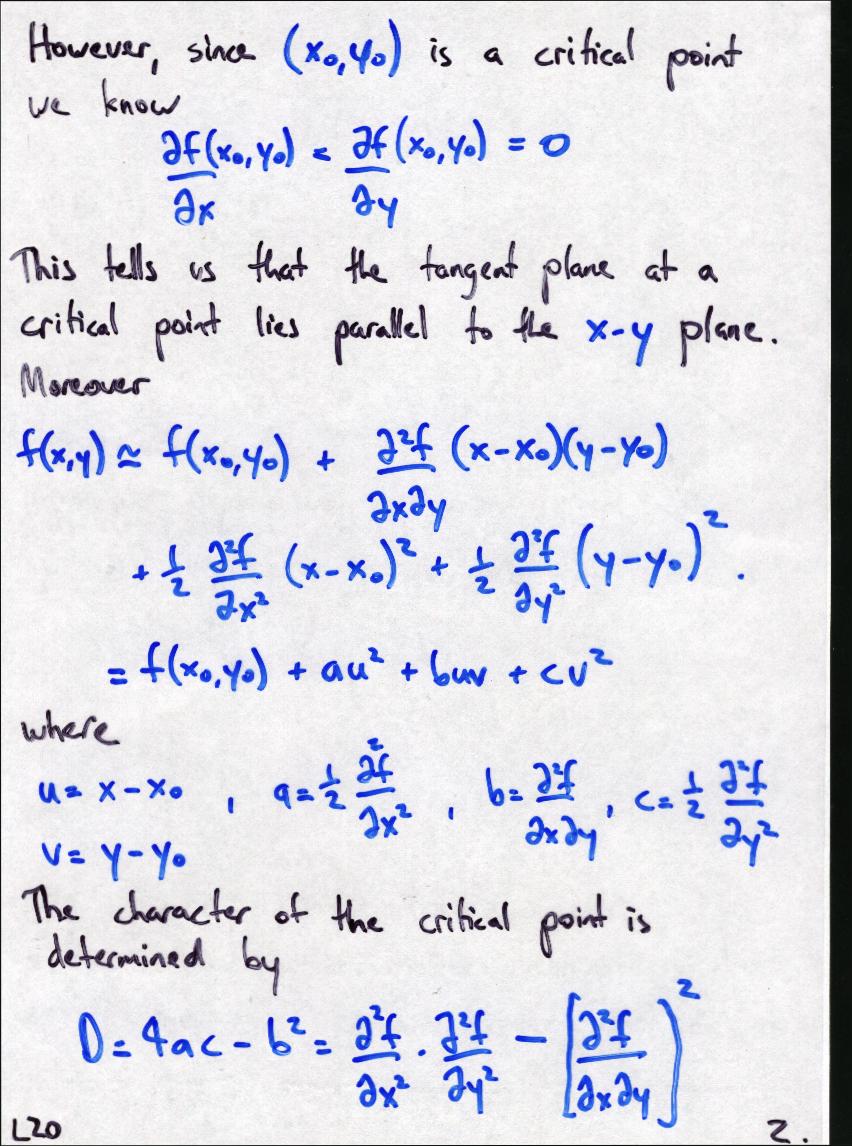 However, since (x₀,y₀) is a critical point
we know
∂f(x₀,y₀)/∂x = ∂f(x₀,y₀)/∂y = 0
This tells us that the tangent plane at a
critical point lies parallel to the x-y plane.
Moreover
f(x,y) ≃ f(x₀,y₀) + ∂²f/∂x∂y (x-x₀)(y-y₀)
+ 1/2 ∂²f/∂x² (x-x₀)² + 1/2 ∂²f/∂y² (y-y₀)².
= f(x₀,y₀) + au² + buv + cv²
where
u = x-x₀ , a = 1/2 ∂²f/∂x² , b = ∂²f/∂x∂y , c = 1/2 ∂²f/∂y²
v = y-y₀
The character of the critical point is
determined by
D = 4ac - b² = ∂²f/∂x² · ∂²f/∂y² - [∂²f/∂x∂y]²
L20 2.